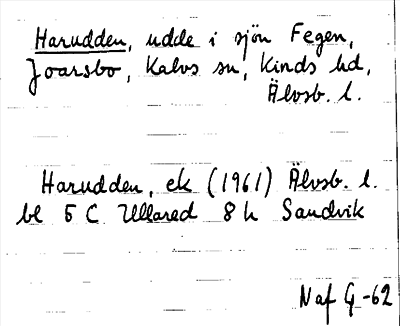 Harudden, udde i sjön Fegen,
Joarsbo, Kalvs sn, Kinds hd,
Älvsb. l.
Harudden, ek (1961) Älvsb. l.
bl 5 C Ullared 8 h Sandvik
Naf G -62